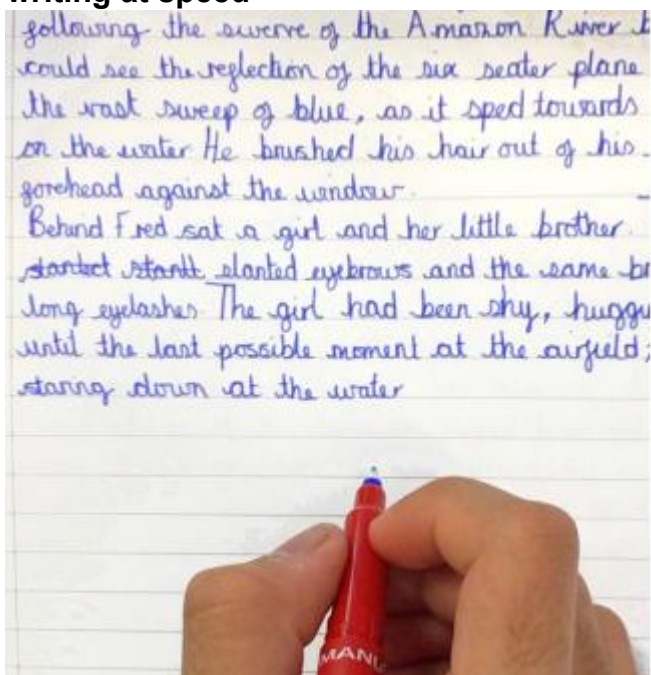 writing at speed
following the swerve of the Amazon River t
could see the reflection of the six seater plane
the vast sweep of blue, as it sped towards
on the water He brushed his hair out of his
forehead against the window.
Behind Fred sat a girl and her little brother.
slanted eyebrows and the same br
long eyelashes The girl had been shy, huggi
until the last possible moment at the airfield;
staring down at the water
MANU